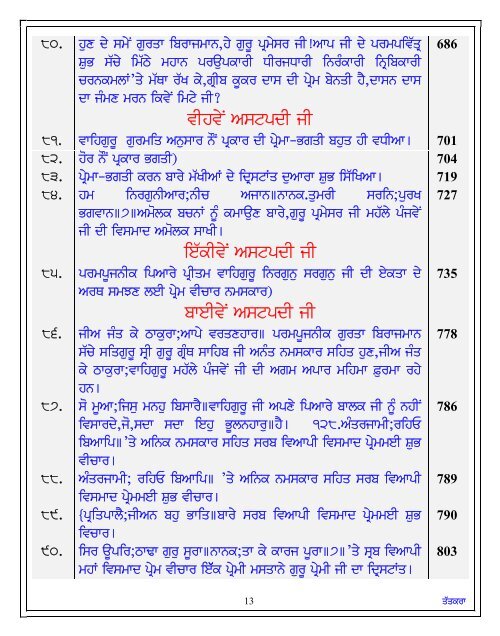 ੮੦. ਹੁਣ ਦੇ ਸਮੇਂ ਗੁਰਤਾ ਬਿਰਾਜਮਾਨ,ਹੇ ਗੁਰੂ ਪ੍ਰਮੇਸਰ ਜੀ!ਆਪ ਜੀ ਦੇ ਪਰਮਪਵਿੱਤ੍ਰ 686
ਸ਼ੁਭ ਸੱਚੇ ਮਿੱਠੇ ਮਹਾਨ ਪਰਉਪਕਾਰੀ ਧੀਰਜਧਾਰੀ ਨਿਰੰਕਾਰੀ ਨ੍ਰਿਬਿਕਾਰੀ
ਚਰਨਕਮਲਾਂ'ਤੇ ਮੱਥਾ ਰੱਖ ਕੇ,ਗ੍ਰੀਬ ਕੂਕਰ ਦਾਸ ਦੀ ਪ੍ਰੇਮ ਬੇਨਤੀ ਹੈ,ਦਾਸਨ ਦਾਸ
ਦਾ ਜੰਮਣ ਮਰਨ ਕਿਵੇਂ ਮਿਟੇ ਜੀ?
ਵੀਹਵੇਂ ਅਸਟਪਦੀ ਜੀ
੮੧. ਵਾਹਿਗੁਰੂ ਗੁਰਮਤਿ ਅਨੁਸਾਰ ਨੌਂ ਪ੍ਰਕਾਰ ਦੀ ਪ੍ਰੇਮਾ-ਭਗਤੀ ਬਹੁਤ ਹੀ ਵਧੀਆ। 701
੮੨. ਹੋਰ ਨੌਂ ਪ੍ਰਕਾਰ ਭਗਤੀ) 704
੮੩. ਪ੍ਰੇਮਾ-ਭਗਤੀ ਕਰਨ ਬਾਰੇ ਮੱਖੀਆਂ ਦੇ ਦ੍ਰਿਸਟਾਂਤ ਦੁਆਰਾ ਸ਼ੁਭ ਸਿੱਖਿਆ। 719
੮੪. ਹਮ ਨਿਰਗੁਨੀਆਰ;ਨੀਚ ਅਜਾਨ॥ਨਾਨਕ.ਤੁਮਰੀ ਸਰਨਿ;ਪੁਰਖ 727
ਭਗਵਾਨ॥੭॥ਅਮੋਲਕ ਬਚਨਾਂ ਨੂੰ ਕਮਾਉਣ ਬਾਰੇ,ਗੁਰੂ ਪ੍ਰਮੇਸਰ ਜੀ ਮਹੱਲੇ ਪੰਜਵੇਂ
ਜੀ ਦੀ ਵਿਸਮਾਦ ਅਮੋਲਕ ਸਾਖੀ।
ਇੱਕੀਵੇਂ ਅਸਟਪਦੀ ਜੀ
੮੫. ਪਰਮਪੂਜਨੀਕ ਪਿਆਰੇ ਪ੍ਰੀਤਮ ਵਾਹਿਗੁਰੂ ਨਿਰਗੁਨੁ ਸਰਗੁਨੁ ਜੀ ਦੀ ਏਕਤਾ ਦੇ 735
ਅਰਥ ਸਮਝਣ ਲਈ ਪ੍ਰੇਮ ਵੀਚਾਰ ਨਮਸਕਾਰ)
ਬਾਈਵੇਂ ਅਸਟਪਦੀ ਜੀ
੮੬. ਜੀਅ ਜੰਤ ਕੇ ਠਾਕੁਰਾ;ਆਪੇ ਵਰਤਣਹਾਰ॥ ਪਰਮਪੂਜਨੀਕ ਗੁਰਤਾ ਬਿਰਾਜਮਾਨ 778
ਸੱਚੇ ਸਤਿਗੁਰੂ ਸ੍ਰੀ ਗੁਰੂ ਗ੍ਰੰਥ ਸਾਹਿਬ ਜੀ ਅਨੰਤ ਨਮਸਕਾਰ ਸਹਿਤ ਹੁਣ,ਜੀਅ ਜੰਤ
ਕੇ ਠਾਕੁਰਾ;ਵਾਹਿਗੁਰੂ ਮਹੱਲੇ ਪੰਜਵੇਂ ਜੀ ਦੀ ਅਗਮ ਅਪਾਰ ਮਹਿਮਾ ਫ਼ੁਰਮਾ ਰਹੇ
ਹਨ।
੮੭. ਸੋ ਮੂਆ;ਜਿਸੁ ਮਨਹੁ ਬਿਸਾਰੈ॥ਵਾਹਿਗੁਰੂ ਜੀ ਅਪਣੇ ਪਿਆਰੇ ਬਾਲਕ ਜੀ ਨੂੰ ਨਹੀਂ 786
ਵਿਸਾਰਦੇ,ਜੋ,ਸਦਾ ਸਦਾ ਇਹੁ ਭੂਲਨਹਾਰੁ॥ਹੈ। ੧੨੮.ਅੰਤਰਜਾਮੀ;ਰਹਿਓ
ਬਿਆਪਿ॥'ਤੇ ਅਨਿਕ ਨਮਸਕਾਰ ਸਹਿਤ ਸਰਬ ਵਿਆਪੀ ਵਿਸਮਾਦ ਪ੍ਰੇਮਮਈ ਸ਼ੁਭ
ਵੀਚਾਰ।
੮੮. ਅੰਤਰਜਾਮੀ; ਰਹਿਓ ਬਿਆਪਿ॥ 'ਤੇ ਅਨਿਕ ਨਮਸਕਾਰ ਸਹਿਤ ਸਰਬ ਵਿਆਪੀ 789
ਵਿਸਮਾਦ ਪ੍ਰੇਮਮਈ ਸ਼ੁਭ ਵੀਚਾਰ।
੮੯. {ਪ੍ਰਤਿਪਾਲੈ;ਜੀਅਨ ਬਹੁ ਭਾਤਿ॥ਬਾਰੇ ਸਰਬ ਵਿਆਪੀ ਵਿਸਮਾਦ ਪ੍ਰੇਮਮਈ ਸ਼ੁਭ 790
ਵਿਚਾਰ।
੯੦. ਸਿਰ ਊਪਰਿ;ਠਾਢਾ ਗੁਰੁ ਸੂਰਾ॥ਨਾਨਕ;ਤਾ ਕੇ ਕਾਰਜ ਪੂਰਾ॥੭॥'ਤੇ ਸ੍ਰਬ ਵਿਆਪੀ 803
ਮਹਾਂ ਵਿਸਮਾਦ ਪ੍ਰੇਮ ਵੀਚਾਰ ਇੱਕ ਪ੍ਰੇਮੀ ਮਸਤਾਨੇ ਗੁਰੂ ਪ੍ਰੇਮੀ ਜੀ ਦਾ ਦ੍ਰਿਸਟਾਂਤ।
13 ਤੱਤਕਰਾ